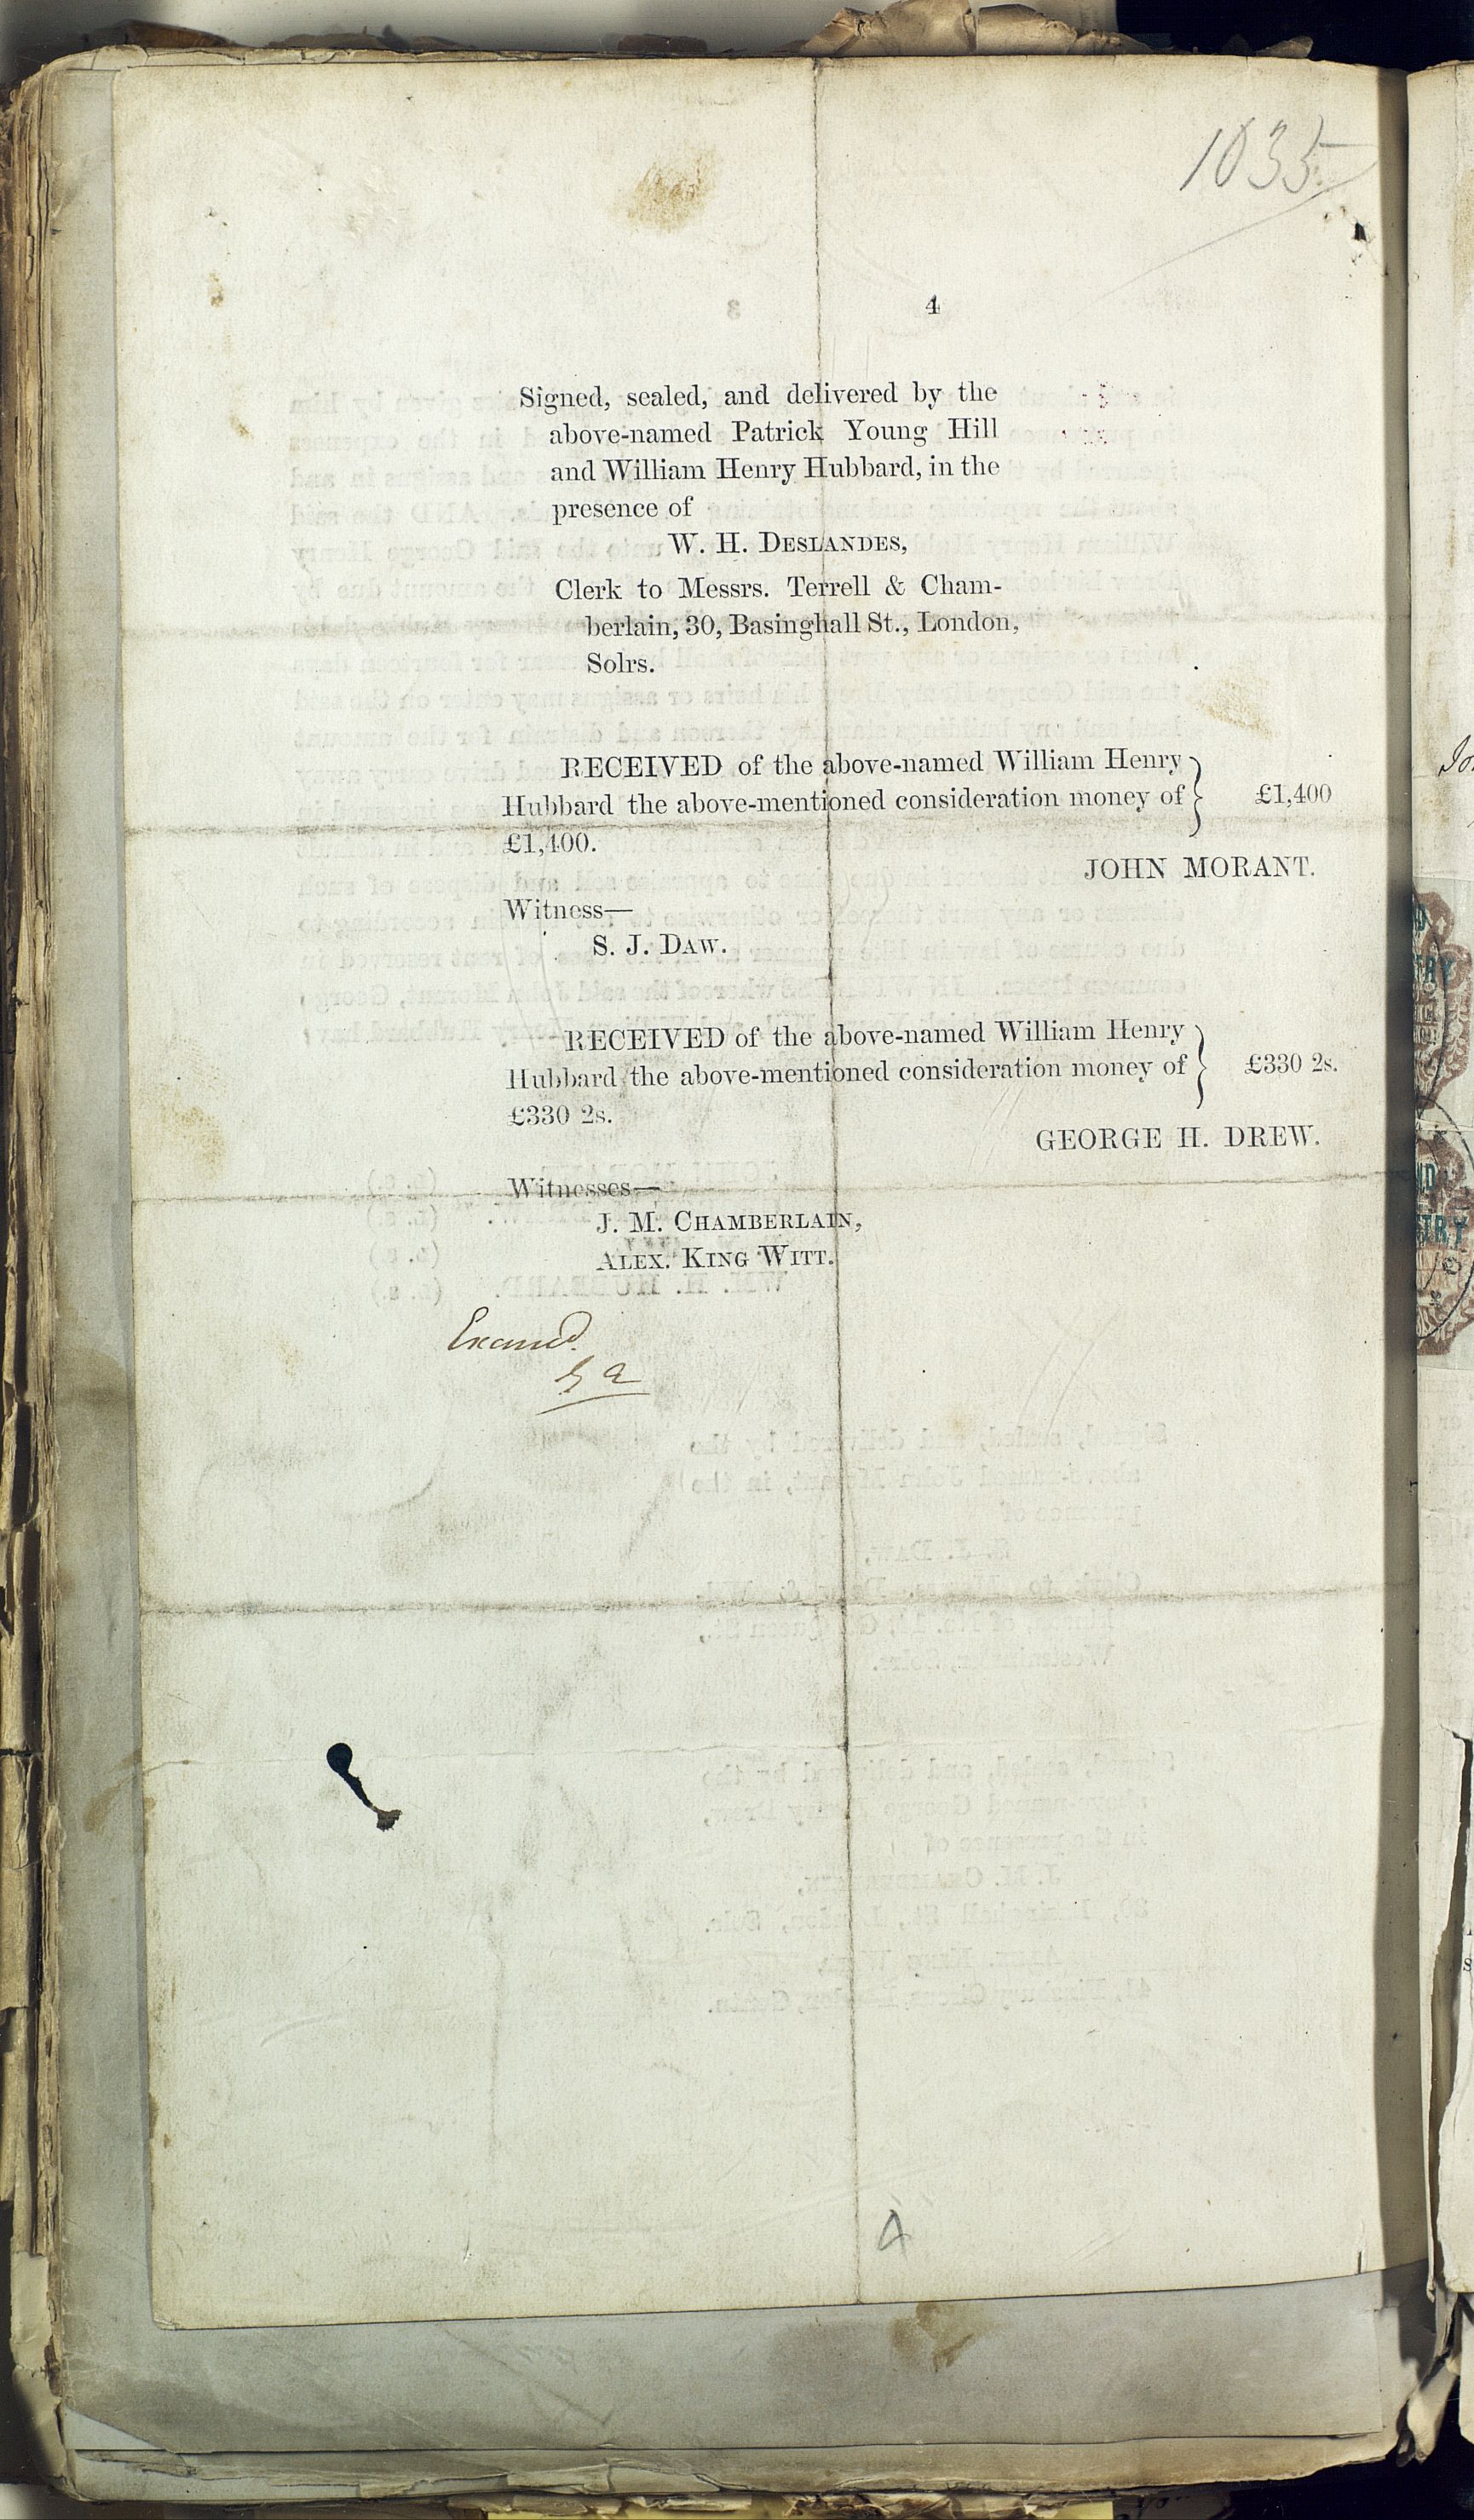 1035
4
Signed, sealed, and delivered by the
above-named Patrick Young Hill
and William Henry Hubbard, in the
presence of
W. H. DESLANDES,
Clerk to Messrs. Terrell & Cham-
berlain, 30, Basinghall St., London,
Solrs.
RECEIVED of the above-named William Henry
Hubbard the above-mentioned consideration money of } £1,400
£1,400.
JOHN MORANT.
Witness—
S. J. DAW.
RECEIVED of the above-named William Henry
Hubbard the above-mentioned consideration money of } £330 2s.
£330 2s.
GEORGE H. DREW.
Witnesses—
J. M. CHAMBERLAIN,
ALEX. KING WITT.
Examd.
4